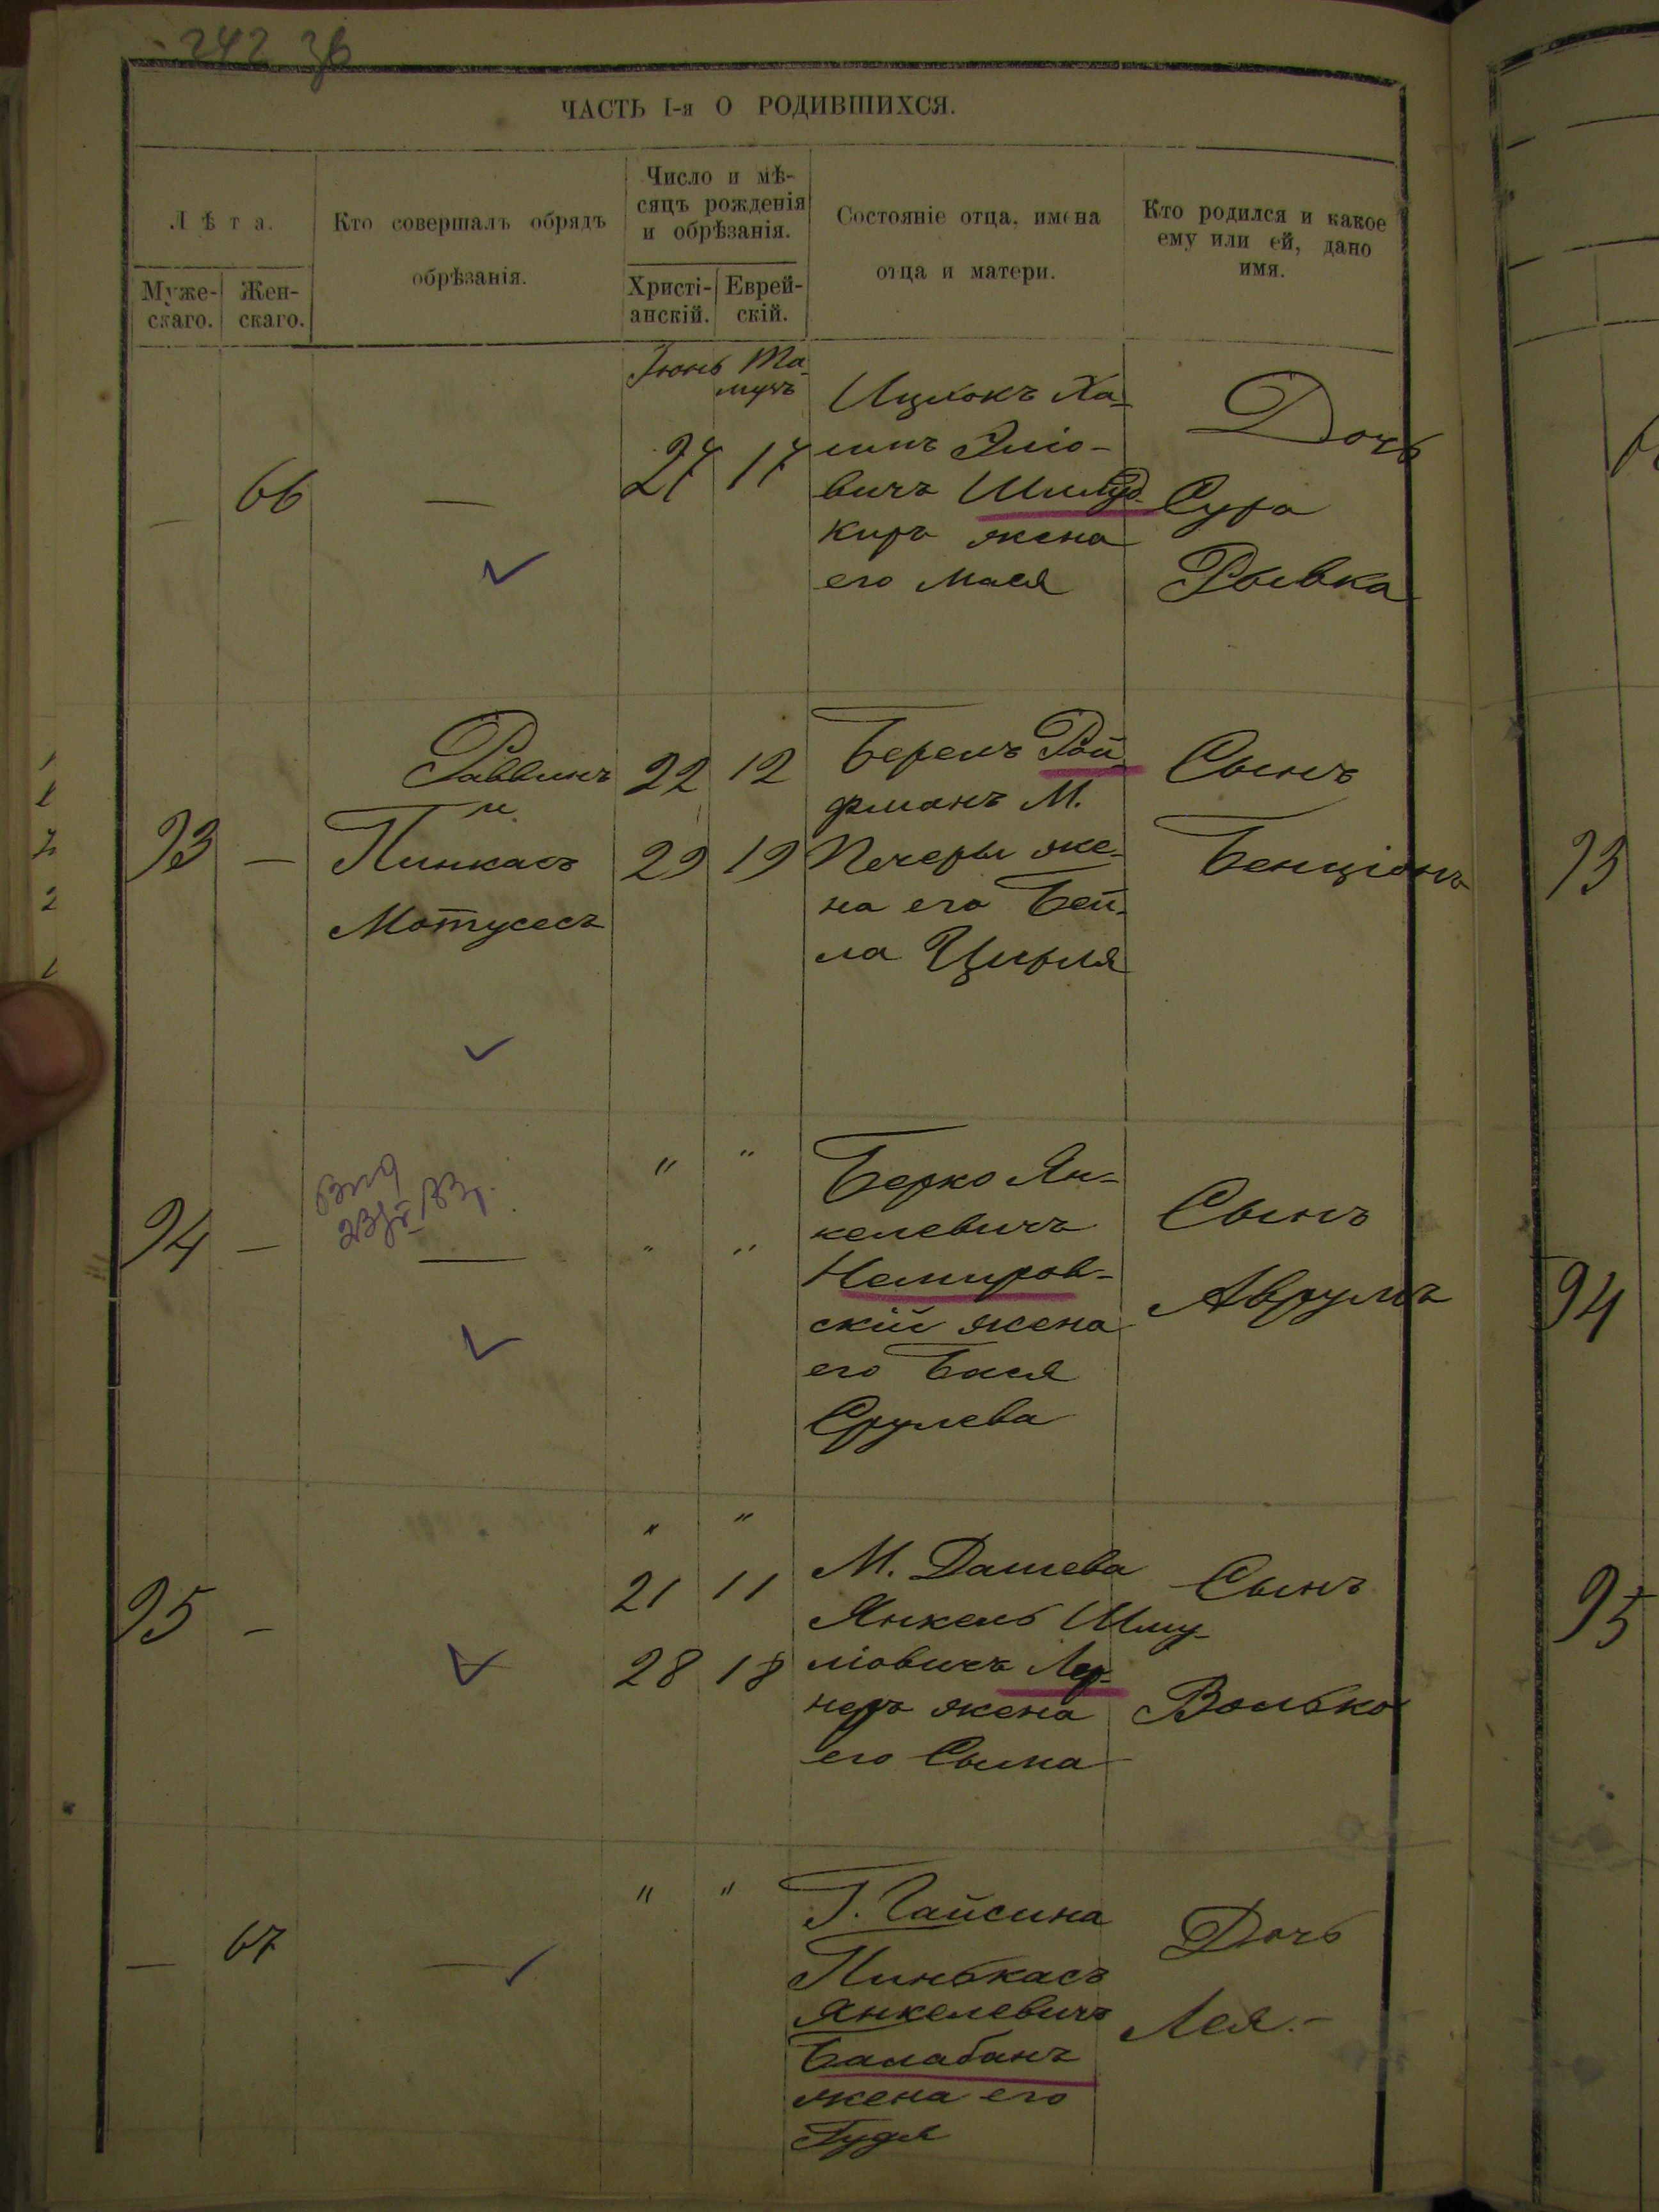 242 зв
ЧАСТЬ I-я О РОДИВШИХСЯ.
Лѣта.
Муже-
скаго.
Жен-
скаго.
Кто совершалъ обрядъ
обрѣзанія.
Число и мѣ-
сяцъ рожденія
и обрѣзанія.
Христі-
анскій.
Еврей-
скій.
Состояніе отца, имена
отца и матери.
Кто родился и какое
ему или ей, дано
имя.
Іюнь
Та-
музъ
— 66
—
27 17
Ицхокъ Ха-
имъ Эліо-
вичъ
киръ жена
его Мася
Дочь
Сура
Рывка
93 —
Раввинъ
и
Пинкасъ
Мотусесъ
22 12
29 19
Беремъ Рой
фманъ М.
Печеры же-
на его Бей-
ла Цирля
Сынъ
Бенціонъ
94 —
—
" "
" "
Берко Ян-
келевичъ
Немиров-
скій жена
его Бася
Срулева
Сынъ
Аврумъ
95 —
—
" "
21 11
28 18
М. Дашева
Янкель Шму-
ліовичъ Лер-
неръ жена
его Сыма
Сынъ
Волько
— 67
—
" "
Г. Гайсина
Пинькасъ
Янкелевичъ
Балабанъ
жена его
Гудя
Дочь
Лея.-
93
94
95